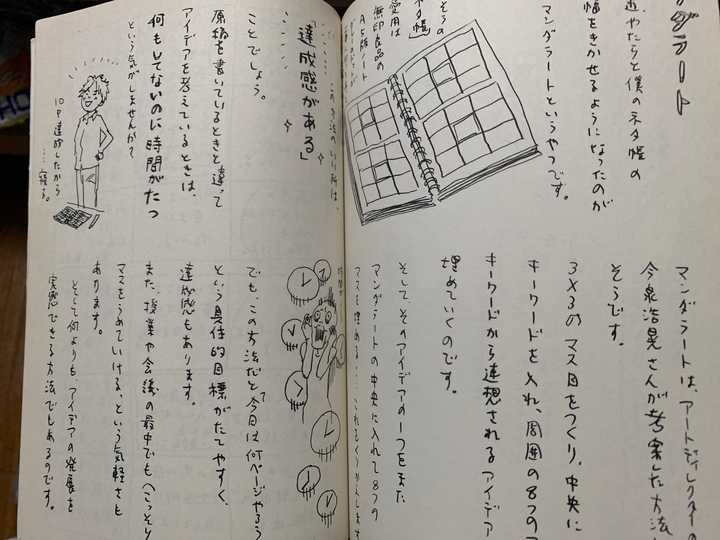 ダラート
近やたらと僕のネタ帳の
幅をきかせるようになったのが
マンダラートというやつです。
ちらの
ネタ帳
愛用は
無印良品の
A5版ノート
マンダラートは、アートディレクターの
今泉浩晃さんが考案した方法
そうです。
3×3のマス目をつくり、中央に
キーワードを入れ、周囲の8つの
キーワードから連想されるアイデア
埋めていくのです。
そして、そのアイデアの1つをまた
マンダラートの中央に入れて8つの
マスを埋める…これをくりかえします
この方法のいい所は、
「達成感がある」
ことでしょう。
原稿を書いているときと違って
アイデアを考えているときは、
何もしてないのに時間がたつ
という気がしませんか?
10P達成したから
……寝る。
時間が
でも、この方法だと「今日は何ページやろう」
という具体的目標がたてやすく、
達成感もあります。
また、授業や会議の最中でも(こっそり
マスをうめていける、という気軽さも
あります。
そして何よりも、アイデアの発展を
実感できる方法でもあるのです。